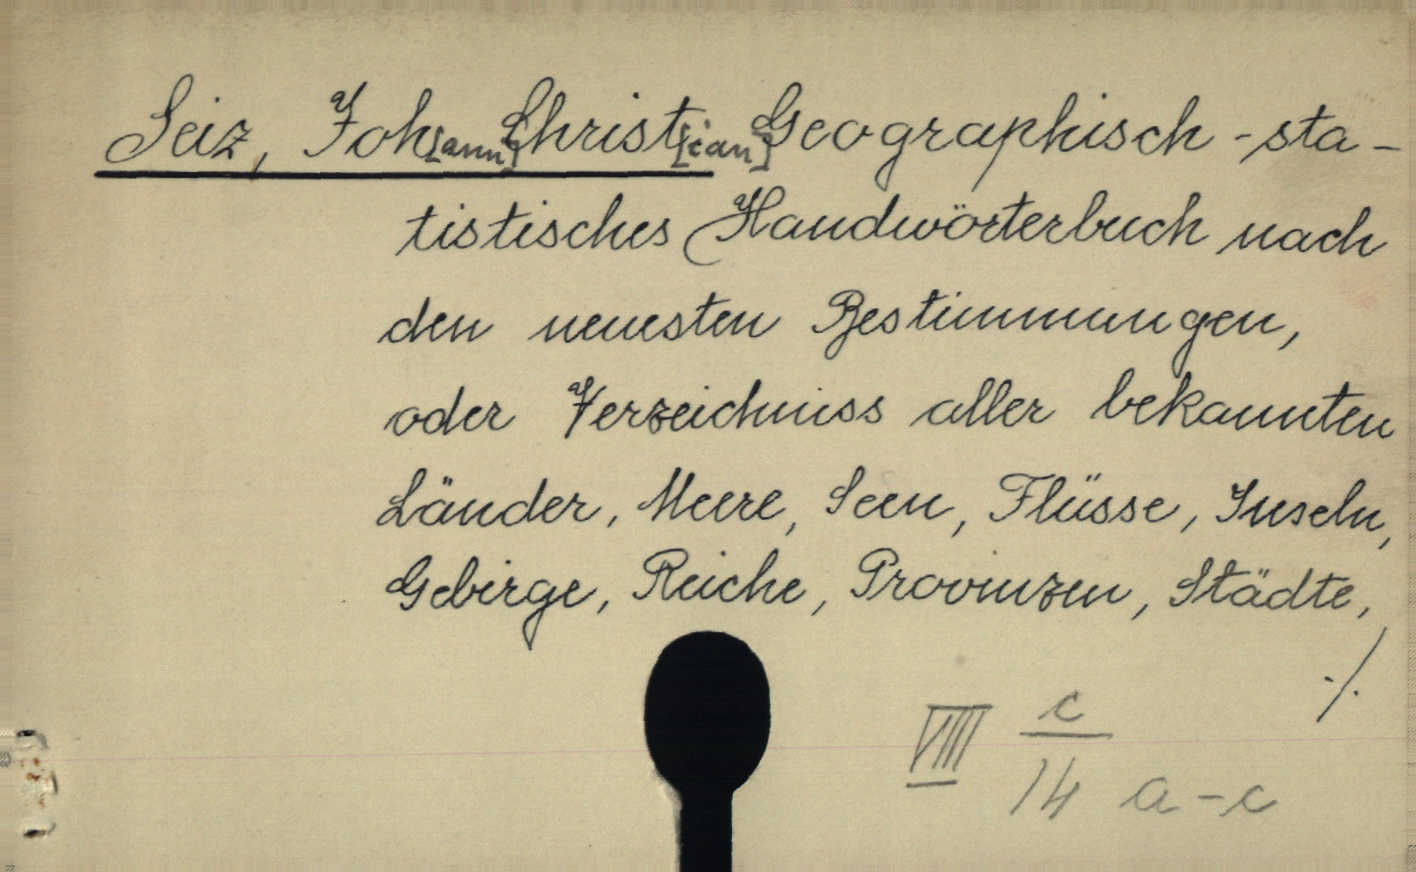 Seiz, Joh[ann] Christ[ian] Geographisch-sta-
tistisches Handwörterbuch nach
den neuesten Bestimmungen,
oder Verzeichniss aller bekannten
Länder, Meere, Seen, Flüsse, Inseln,
Gebirge, Reiche, Provinzen, Städte,
./.
VIIII c/14 a-c